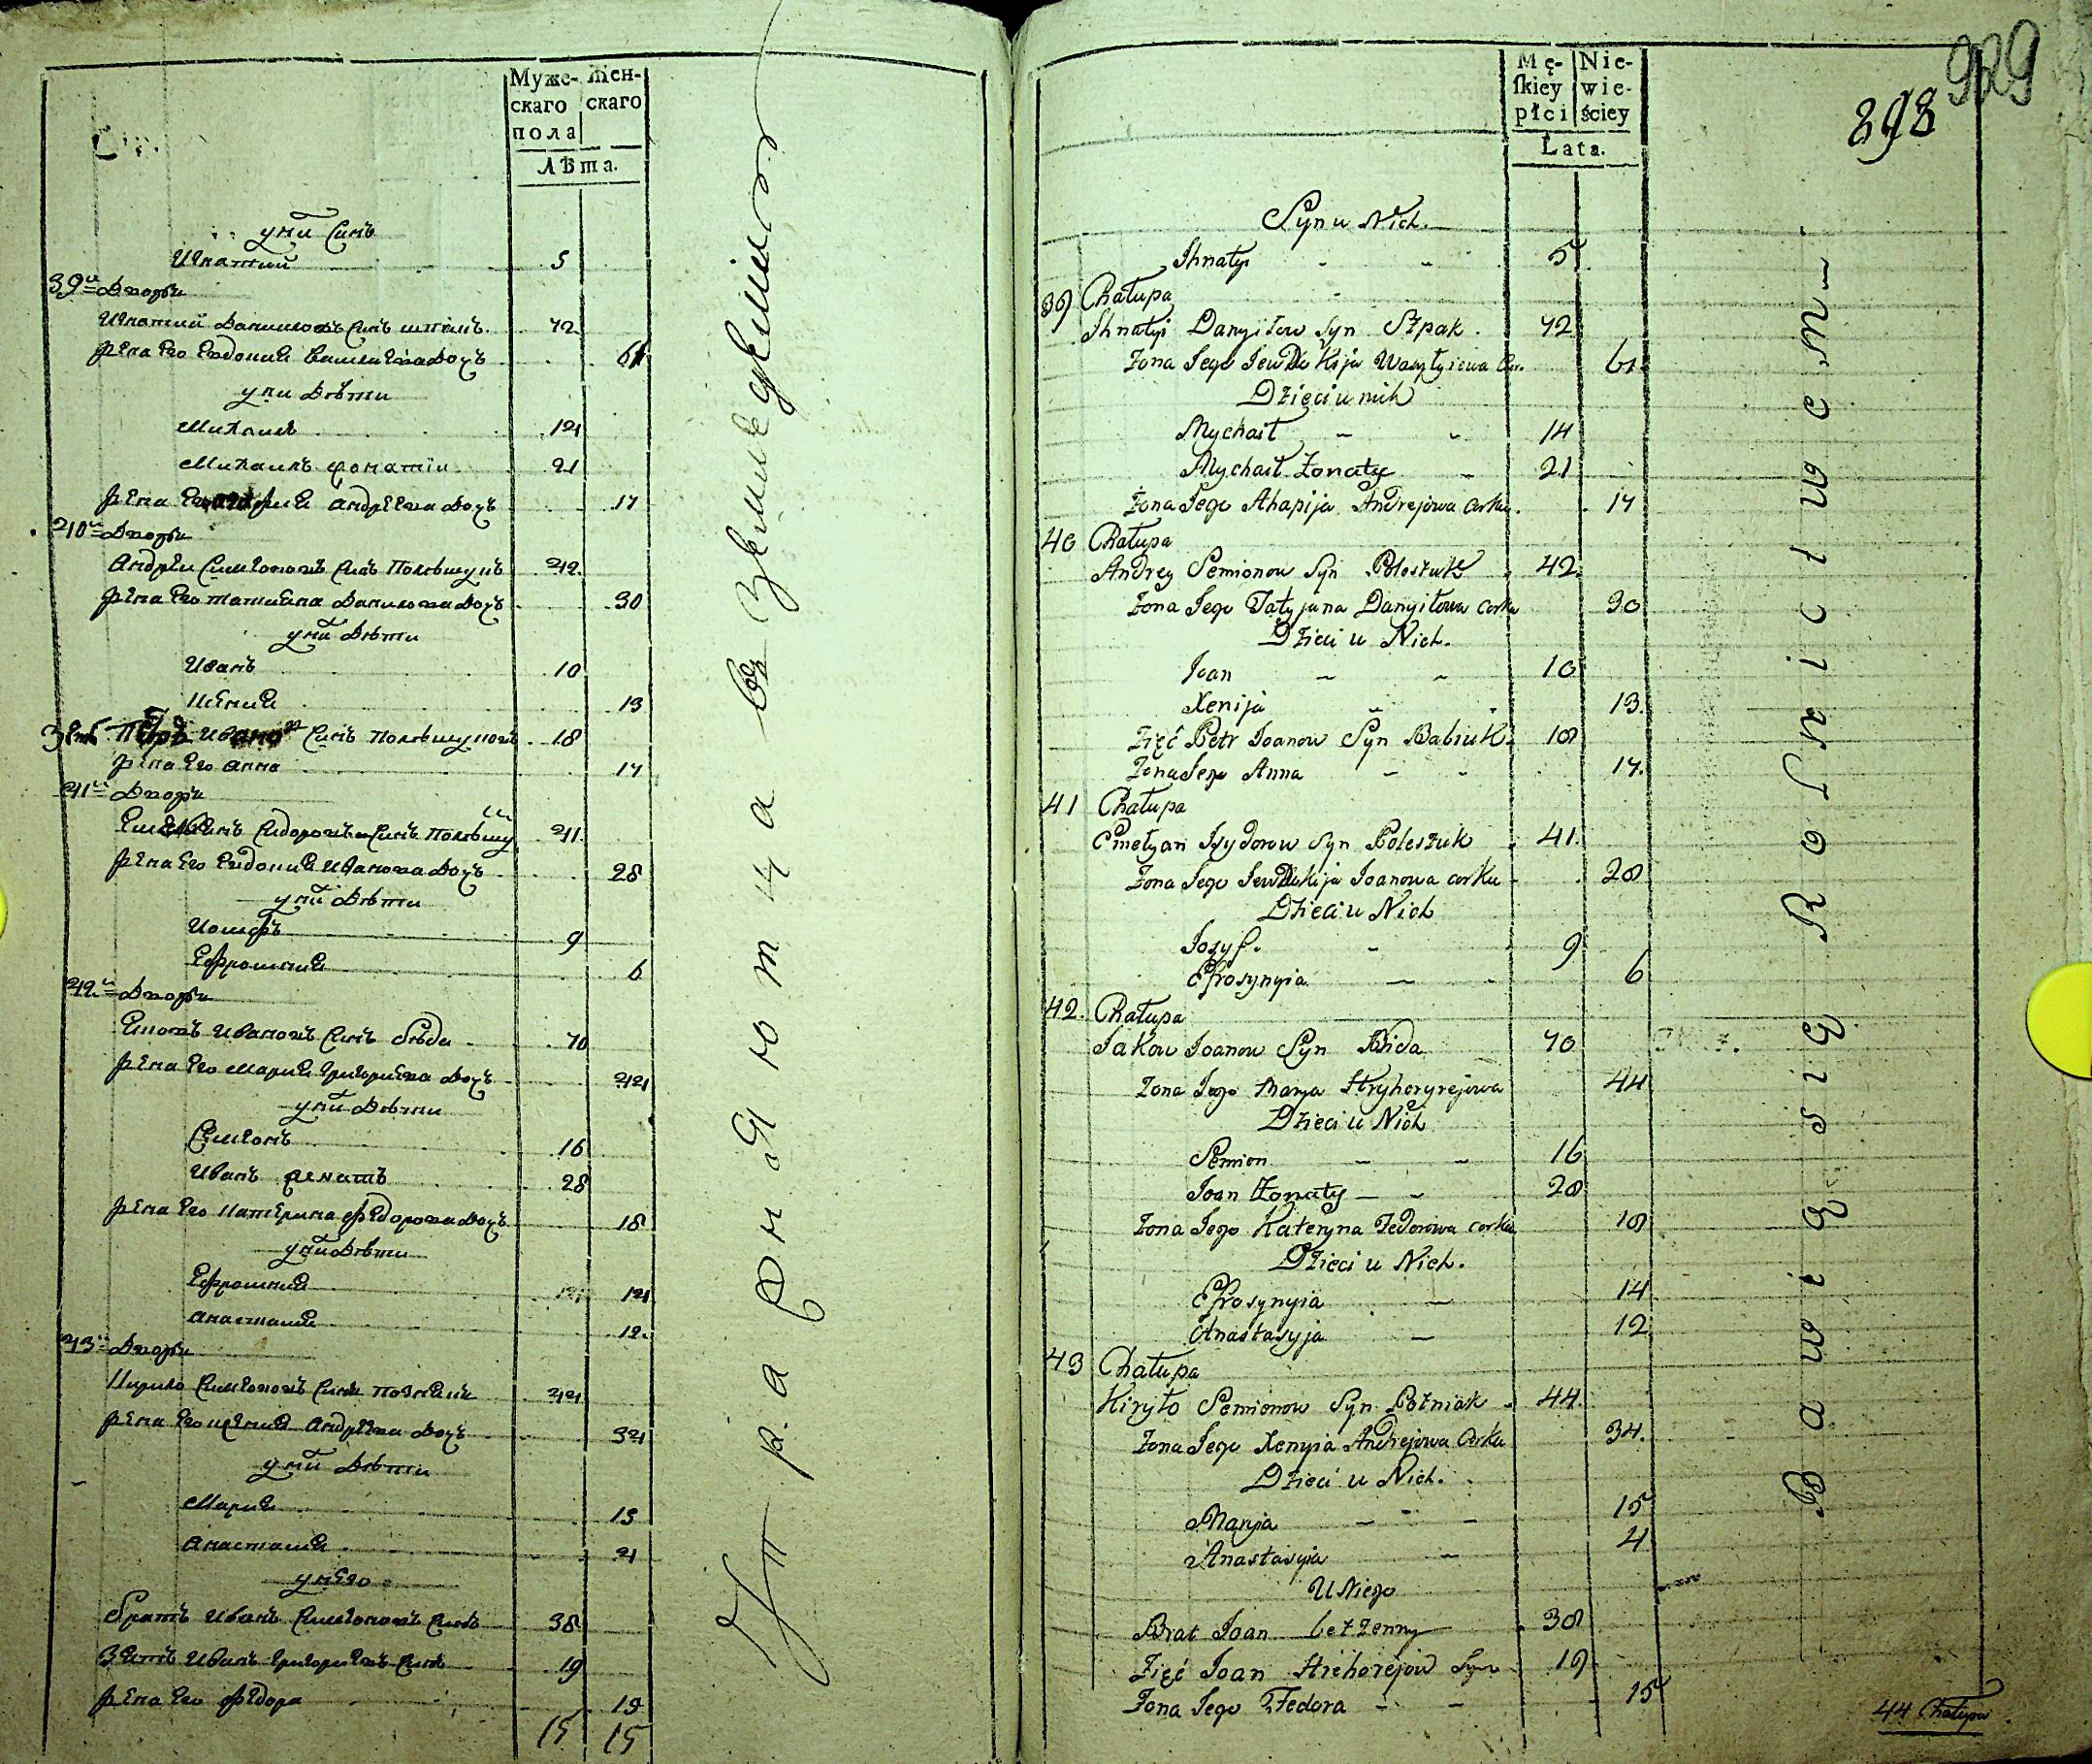 Муже- Жен-
скаго скаго
пола
Лѣта.
у ни Синъ
Игнатий 5
39й Дворъ
Игнатий Данилювъ Синъ Шпакъ 72
Жена Его Евдокия Василиева Дочъ 61
у ни Дѣти
Михаилъ 14
Михаилъ жонатий 21
Жена Его Андреева Дочъ 17
40й Дворъ
Андрей Симионовъ Синъ Полѣшукъ 42
Жена Его Татияна Данилова Дочъ 30
у ни Дѣти
Иванъ 10
Ксения 13
Зять Петръ Ивановъ Синъ 18
Жена Его Анна 17
41й Дворъ
Емелянъ Сидоровъ Синъ Полѣшу 41
Жена Его Евдокия Иванова Дочъ 28
у ни Дѣти
Иосифъ 9
Ефросиния 6
42й Дворъ
Яковъ Ивановъ Синъ Бѣда 70
Жена Его Мария Григориева Дочъ 44
у ни Дѣти
Симионъ 16
Иванъ женатъ 28
Жена Его Катерина Федорова Дочъ 18
у ни Дѣти
Ефросиния 14
Анастасия 12
43й Дворъ
Кирило Симионовъ Синъ Познякъ 44
Жена Его Ксения Андреева Дочъ 34
у ни Дѣти
Мария 15
Анастасия 4
у него
Братъ Иванъ Симионовъ Синъ 38
Зять Иванъ Григориевъ Синъ 19
Жена Его Федора 15
15 15
929
898
Mę- Nie-
ſkiey wie-
płci ściey
Lata.
Syn u Nich.
Ihnatyi 5
39 Chałupa
Ihnatyi Danyiłow Syn Szpak 72
Żona Jego Jewdokija Wasylyiewa Cor. 61
Dzieci u nich
Mychaił 14
Mychaił Żonaty 21
Żona Jego Ahapija Andrejowa Corka 17
40 Chałupa
Andrey Semionow Syn Poleszuk 42
Żona Jego Tatyjana Danyiłowa Corka 30
Dzieci u Nich.
Joan 10
Xenija 13
Zięć Petr Joanow Syn Babiuk 18
Żona Jego Anna 17
41 Chałupa
Emelyan Isydorow Syn Poleszuk 41
Żona Jego Jewdokija Joanowa corka 28
Dzieci u Nich
Iozyf. 9
Efrosynyia 6
42. Chałupa
Jakow Joanow Syn Bida 70
Żona Jego Marya Hryhoryrejowa 44
Dzieci u Nich
Semion 16
Joan Żonaty 28
Żona Jego Kateryna Fedorowa corka 18
Dzieci u Nich.
Efrosynyia 14
Anastasyja 12
43 Chałupa
Kiryło Semionow Syn Pozniak 44
Żona Jego Xenyia Andrejowa Corka 34
Dzieci u Nich.
Marya 15
Anastasyia 4
U Niego
Brat Joan bezżenny 38
Zięć Joan Hrehorejow Syn 19
Żona Jego Fedora 15
Bawią się Rolnictwem
44 Chałupow